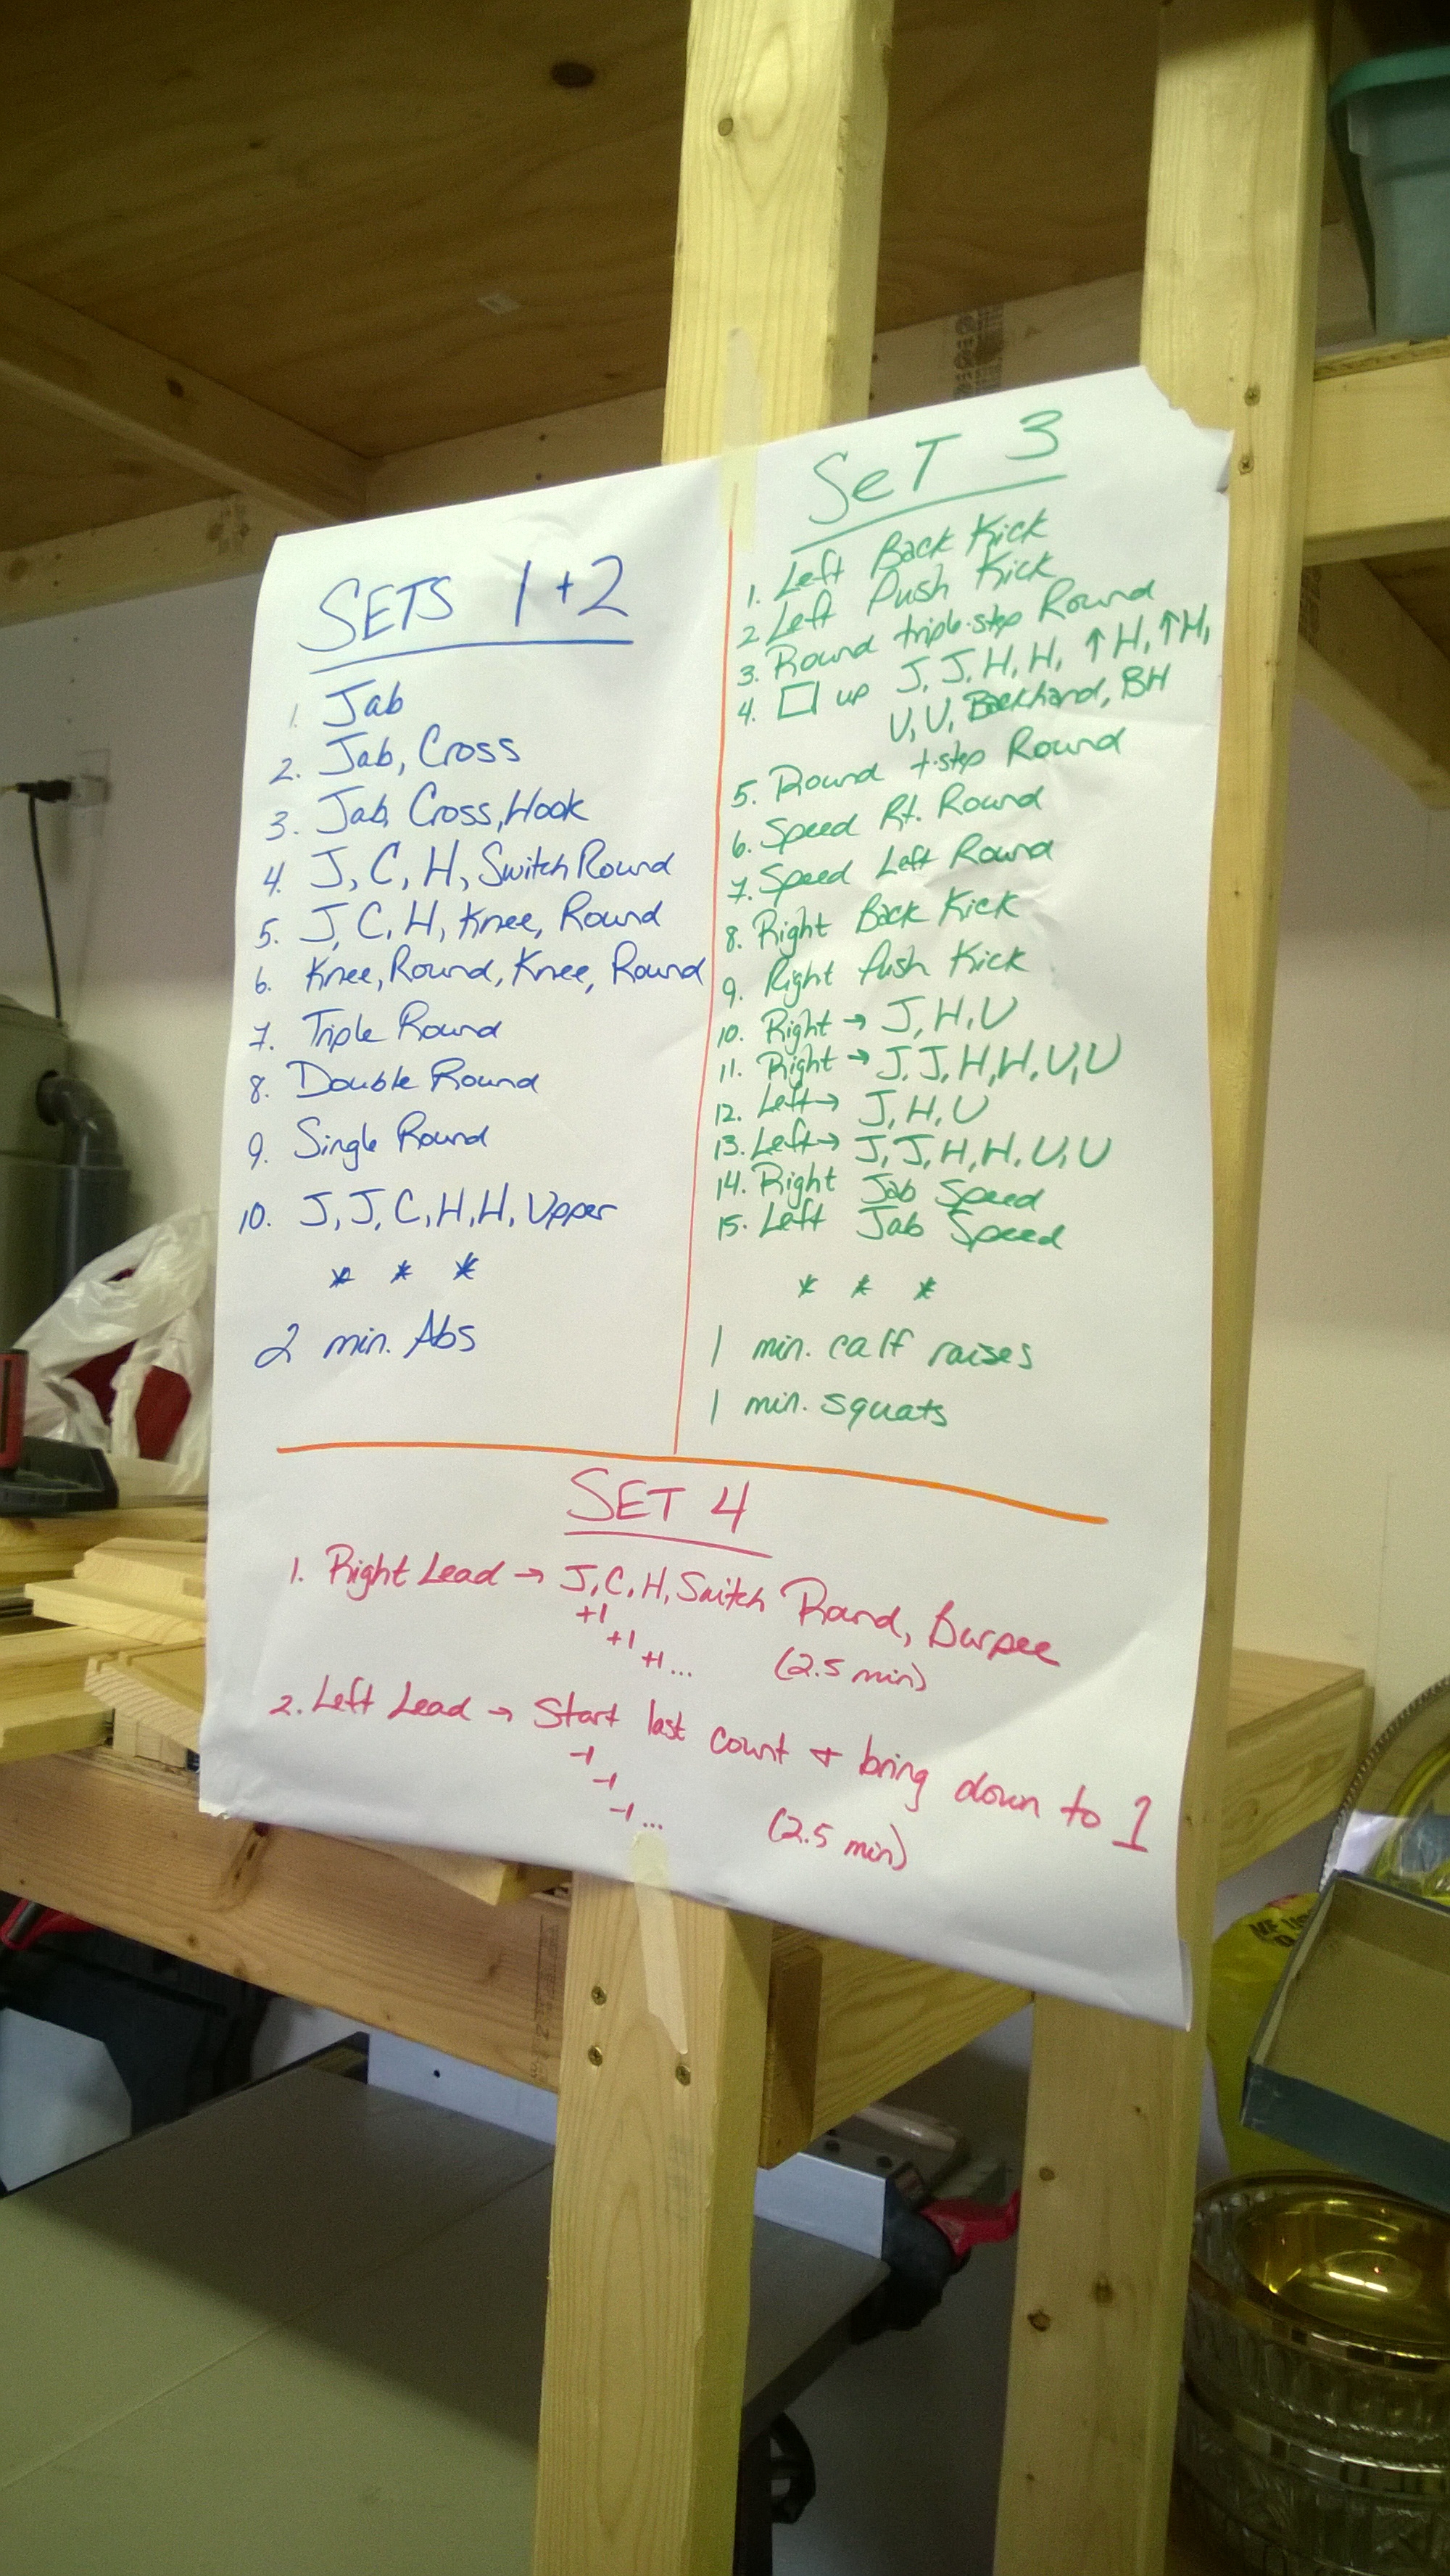 SETS 1+2
1. Jab
2. Jab, Cross
3. Jab, Cross, Hook
4. J, C, H, Switch Round
5. J, C, H, Knee, Round
6. Knee, Round, Knee, Round
7. Triple Round
8. Double Round
9. Single Round
10. J, J, C, H, H, Upper
* * *
2 min. Abs
SeT 3
1. Left Back Kick
2. Left Push Kick
3. Round triple-step Round
4. □ up J, J, H, H, ↑H, ↑H,
U, U, Backhand, BH
5. Round t-step Round
6. Speed Rt. Round
7. Speed Left Round
8. Right Back Kick
9. Right Push Kick
10. Right → J, H, U
11. Right → J, J, H, H, U, U
12. Left → J, H, U
13. Left → J, J, H, H, U, U
14. Right Jab Speed
15. Left Jab Speed
* * *
1 min. calf raises
1 min. squats
SET 4
1. Right Lead → J, C, H, Switch Round, Burpee
+1
+1
+1... (2.5 min)
2. Left Lead → Start last count + bring down to 1
-1
-1
-1... (2.5 min)